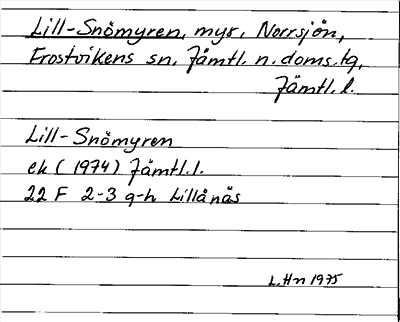 Lill-Snömyren, myr, Norrsjön,
Frostvikens sn. Jämtl. n. doms.tg,
Jämtl. l.
Lill-Snömyren
ek (1974) Jämtl. l.
22 F 2-3 g-h Lillånäs
L. Hn 1975